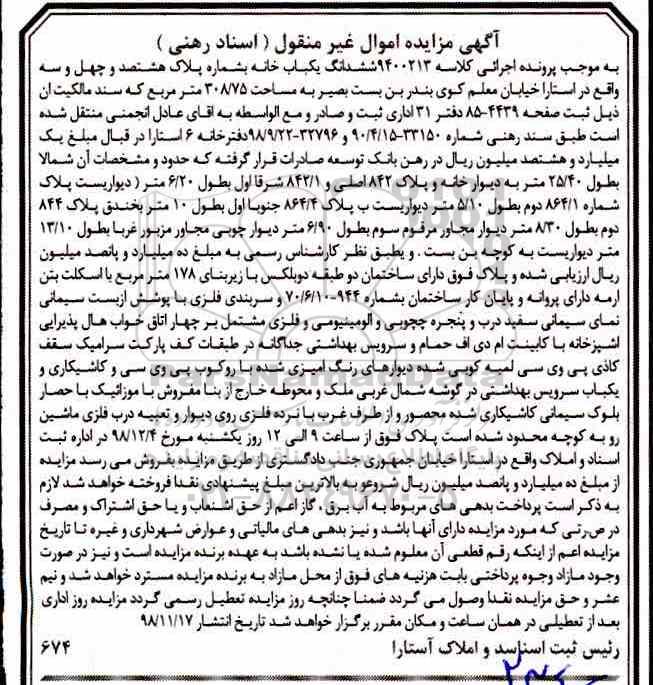 آگهی مزایده اموال غیر منقول ( اسناد رهنی )
به موجب پرونده اجرائی کلاسه ۹۴۰۰۲۱۳ششدانگ یکباب خانه بشماره پلاک هشتصد و چهل و سه
واقع در استارا خیابان معلم کوی بندر بن بست بصیر به مساحت ۳۰۸/۷۵ متر مربع که سند مالکیت ان
ذیل ثبت صفحه ۴۴۳۹-۸۵ دفتر ۳۱ اداری ثبت و صادر و مع الواسطه به اقای عادل انجمنی منتقل شده
است طبق سند رهنی شماره ۳۳۱۵۰-۹۰/۴/۱۵ و ۳۲۷۹۶-۹۸/۹/۲۲دفترخانه ۶ استارا در قبال مبلغ یک
میلیارد و هشتصد میلیون ریال در رهن بانک توسعه صادرات قرار گرفته که حدود و مشخصات آن شمالا
بطول ۲۵/۴۰ متر به دیوار خانه و پلاک ۸۴۲ اصلی و ۸۴۲/۱ شرقا اول بطول ۶/۲۰ متر ( دیواریست پلاک
شماره ۸۶۴/۱ دوم بطول ۵/۱۰ متر دیواریست ب پلاک ۸۶۴/۴ جنوبا اول بطول ۱۰ متر بخندق پلاک ۸۴۴
دوم بطول ۸/۳۰ متر دیوار مجاور مرقوم سوم بطول ۶/۹۰ متر دیوار چوبی مجاور مزبور غربا بطول ۱۳/۱۰
متر دیواریست به کوچه بن بست . و یطبق نظر کارشناس رسمی به مبلغ ده میلیارد و پانصد میلیون
ریال ارزیابی شده و پلاک فوق دارای ساختمان دو طبقه دوبلکس با زیربنای ۱۷۸ متر مربع با اسکلت بتن
ارمه دارای پروانه و پایان کار ساختمان بشماره ۹۴۴-۷۰/۶/۱۰ و سربندی فلزی با پوشش ازبست سیمانی
نمای سیمانی سفید درب و پنجره چجوبی و الومینیومی و فلزی مشتمل بر چهار اتاق خواب هال پذیرایی
اشپزخانه با کابینت ام دی اف حمام و سرویس بهداشتی جداگانه در طبقات کف پارکت سرامیک سقف
کاذی پی وی سی لمبه کوبی شده دیوارهای رنگ امیزی شده با روکوب پی وی سی و کاشیکاری و
یکباب سرویس بهداشتی در گوشه شمال غربی ملک و محوطه خارج از بنا مفروش با موزائیک با حصار
بلوک سیمانی کاشیکاری شده محصور و از طرف غرب با نرده فلزی روی دیوار و تعبیه درب فلزی ماشین
رو به کوچه محدود شده است پلاک فوق از ساعت ۹ الی ۱۲ روز یکشنبه مورخ ۹۸/۱۲/۴ در اداره ثبت
اسناد و املاک واقع در استارا خیابان جمهوری جنب دادگستری از طریق مزایده بفروش می رسد مزایده
از مبلغ ده میلیارد و پانصد میلیون ریال شروعو به بالاترین مبلغ پیشنهادی نقدا فروخته خواهد شد لازم
به ذکر است پرداخت بدهی های مربوط به آب برق ، گاز اعم از حق اشنعاب و یا حق اشتراک و مصرف
در صرتی که مورد مزایده دارای آنها باشد و نیز بدهی های مالیاتی و عوارض شهرداری و غیره تا تاریخ
مزایده اعم از اینکه رقم قطعی آن معلوم شده یا نشده باشد به عهده برنده مزایده است و نیز در صورت
وجود مازاد وجوه پرداختی بابت هزنیه های فوق از محل مازاد به برنده مزایده مسترد خواهد شد و نیم
عشر و حق مزایده نقدا وصول می گردد ضمنا چنانچه روز مزایده تعطیل رسمی گردد مزایده روز اداری
بعد از تعطیلی در همان ساعت و مکان مقرر برگزار خواهد شد تاریخ انتشار ۹۸/۱۱/۱۷
رئیس ثبت اسناسد و املاک آستارا ۶۷۴